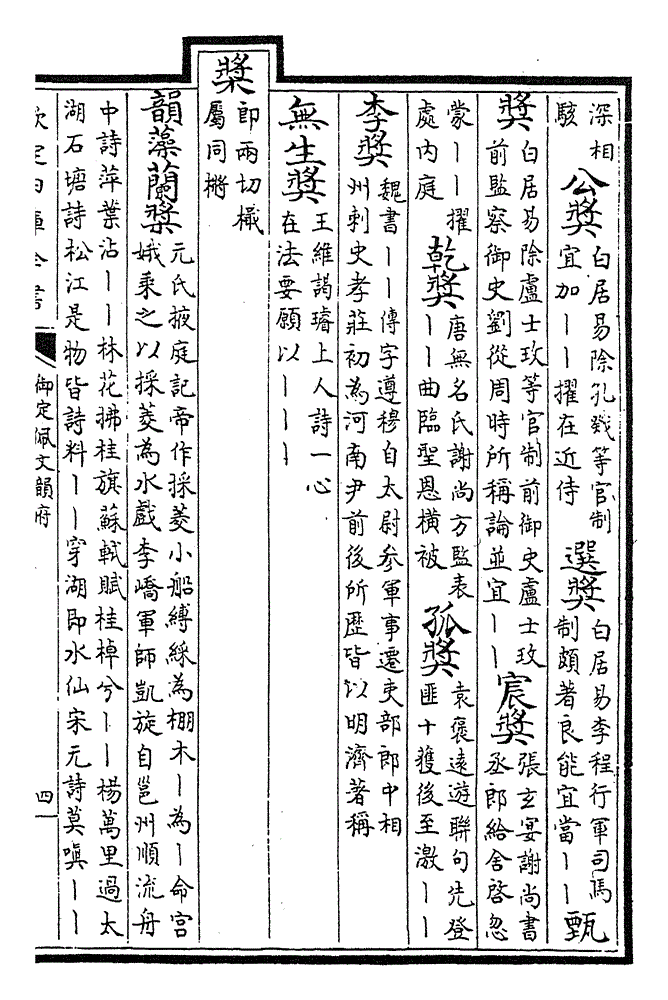 深相
駭
公奬
白居易除孔戣等官制
宜加丨丨擢在近侍
選奬
白居易李程行軍司馬
制頗著良能宜當丨丨
甄
奬
白居易除盧士玫等官制前御史盧士玫
前監察御史劉從周時所稱論並宜丨丨
宸奬
張玄宴謝尚書
丞郎給舍啓忽
蒙丨丨擢
處内庭
乾奬
唐無名氏謝尚方監表
丨丨曲臨聖恩横被
孤奬
袁褒遠遊聯句先登
匪十獲後至激丨丨
李奬
魏書丨丨傳字遵穆自太尉參軍事遷吏部郎中相
州刺史孝莊初為河南尹前後所歴皆以明濟著稱
無生奬
王維謁璿上人詩一心
在法要願以丨丨丨
槳
即兩切檝
屬同㯍
韻藻蘭槳
元氏掖庭記帝作採菱小船縛綵為棚木丨為丨命宮
娥乘之以採菱為水戲李嶠軍師凱旋自邕州順流舟
中詩萍葉沾丨丨林花拂桂旗蘇軾賦桂棹兮丨丨楊萬里過太
湖石塘詩松江是物皆詩料丨丨穿湖即水仙宋元詩莫嗔丨丨
欽定四庫全書
御定佩文韻府
四